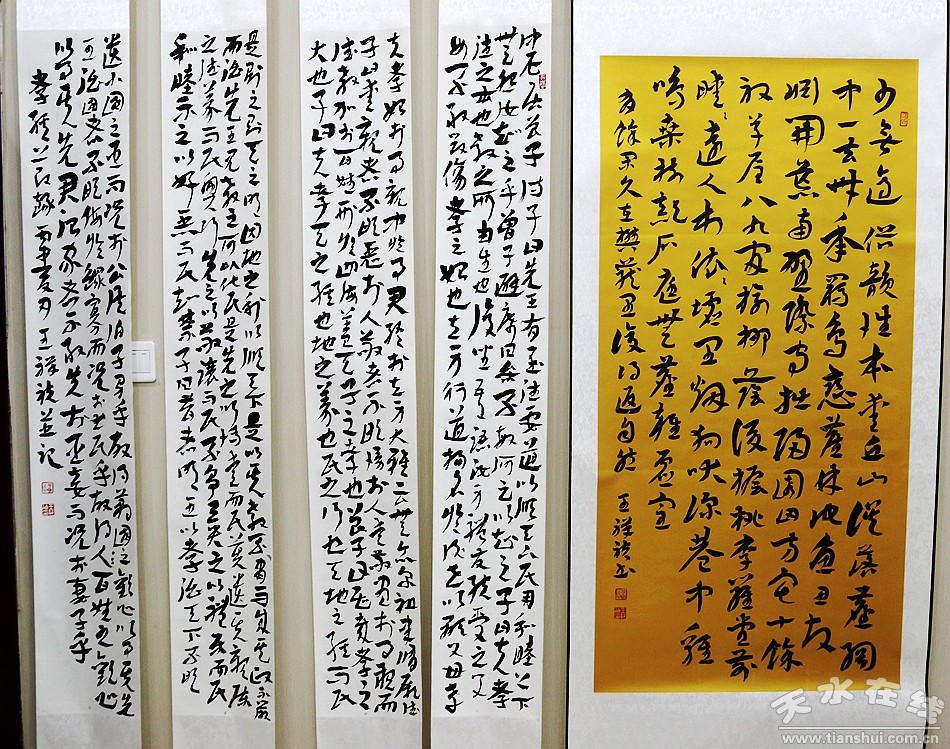 少無適俗韻性本愛丘山誤落塵網
中一去卅年羈鳥戀舊林池魚思故
淵開荒南野際守拙歸園田方宅十餘
畝草屋八九間榆柳蔭後檐桃李羅堂前
曖曖遠人村依依墟里烟狗吠深巷中雞
鳴桑樹顛戶庭無塵雜虛室
有餘閑久在樊籠里復得返自然
仲尼居曾子侍子曰先王有至德要道以順天下民用和睦上下
無怨汝知之乎曾子避席曰參不敏何足以知之子曰夫孝
德之本也教之所由生也復坐吾語汝身體髮膚受之父
母不敢毀傷孝之始也立身行道揚名於後世以顯父母孝
夫孝始於事親中於事君終於立身大雅云無念爾祖聿修厥德
子曰愛親者不敢惡於人敬者不敢慢於人愛敬盡於事親而
德教加於百姓刑於四海蓋天子之孝也曾子曰甚哉孝之
大也子曰夫孝天之經也地之義也民之行也天地之經而民
是則之則天之明因地之利以順天下是以其教不肅而成其政不嚴
而治先王見教之可以化民是先之以博愛而民莫遺其親陳
之德義而民興行先之以敬讓而民不爭導之以禮樂而民
和睦示之以好惡而民知禁子曰昔者明王以孝治天下不敢
遺小國之臣而況於公侯伯子男乎故得萬國之歡心以事其先
王治國者不敢侮於鰥寡而況於士民乎故得人百姓之歡心
以事其先君治家者不敢失於臣妾而況於妻子乎
天水在线
www.tianshui.com.cn